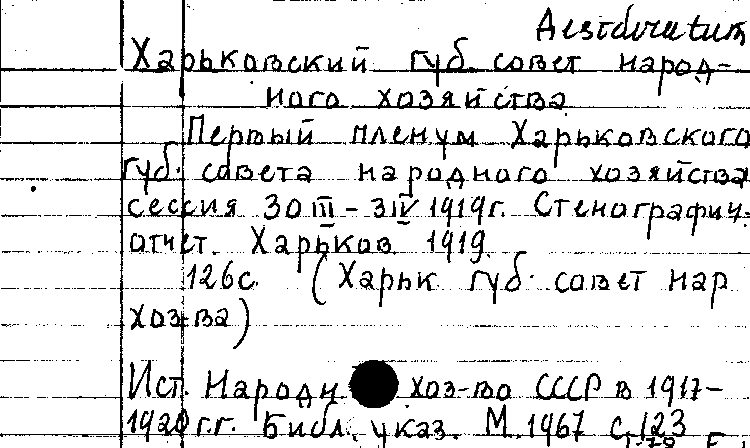 Desideratum
Харьковский губ. совет народ-
ного хозяйства
Первый пленум Харьковского
губ. совета народного хозяйства
сессия 30 III – 3 IV 1919г. Стенографич.
отчет. Харьков 1919
126с. (Харьк губ. совет нар
хоз-ва)
Ист. Народн хоз-во СССР в 1917–
1920 г.г. Библ. указ. М. 1967 с. 123